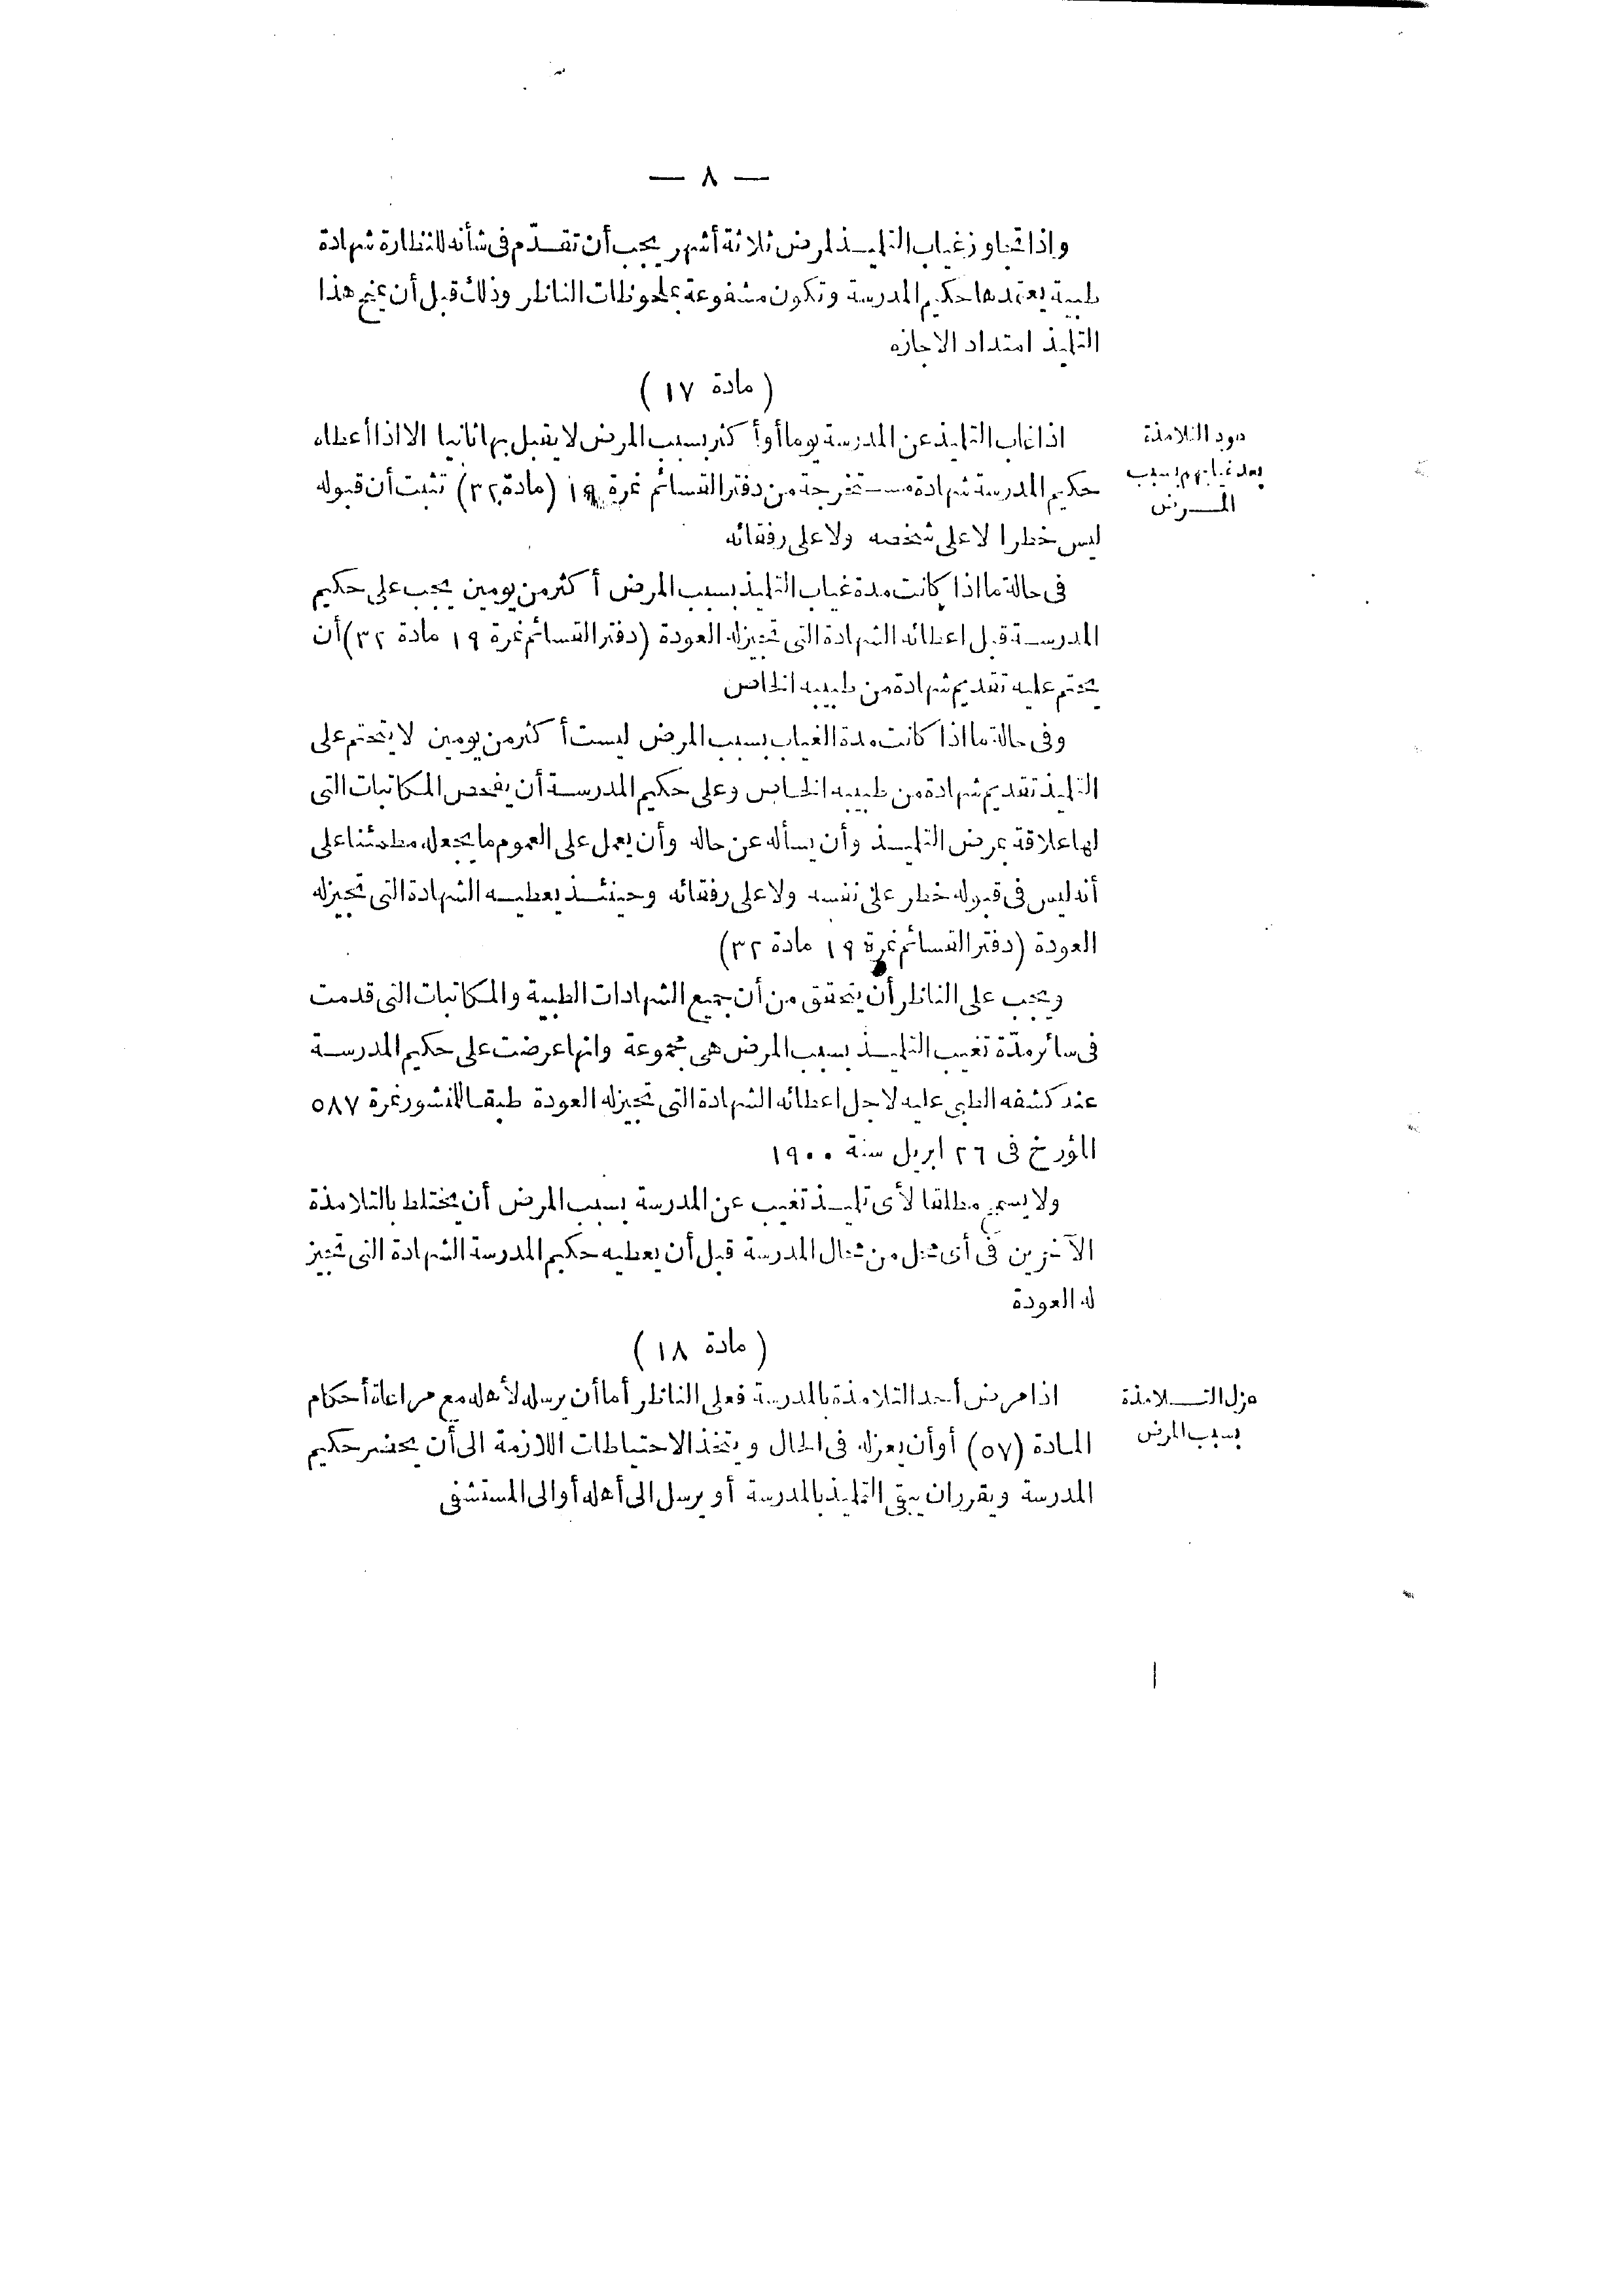 — ٨ —
واذا تجاوز غياب التلميذ لمرض ثلاثة أشهر يجب أن تقدّم فى شأنه للنظارة شهادة
طبية يعتمدها حكيم المدرسة وتكون مشفوعة بملحوظات الناظر وذلك قبل أن يمنح هذا
التلميذ امتداد الاجازه
( مادة ١٧ )
عود التلامذة
بعد غيابهم بسبب
المرض
اذا غاب التلميذ عن المدرسة يوما أو أكثر بسبب المرض لا يقبل بها ثانيا الا اذا أعطاه
حكيم المدرسة شهادة مستخرجة من دفتر القسائم نمرة ١٩ (مادة ٣٢) تثبت أن قبوله
ليس خطرا لا على شخصه ولا على رفقائه
فى حالة ما اذا كانت مدة غياب التلميذ بسبب المرض أكثر من يومين يجب على حكيم
المدرسة قبل اعطائه الشهادة التى تجيز له العودة (دفتر القسائم نمرة ١٩ مادة ٣٢) أن
يحتم عليه تقديم شهادة من طبيبه الخاص
وفى حالة ما اذا كانت مدة الغياب بسبب المرض ليست أكثر من يومين لا يتحتم على
التلميذ تقديم شهادة من طبيبه الخاص وعلى حكيم المدرسة أن يفحص المكاتبات التى
لها علاقة بمرض التلميذ وأن يسأله عن حاله وأن يعمل على العموم ما يجعله مطمئنا على
أنه ليس فى قبوله خطر على نفسه ولا على رفقائه وحينئذ يعطيه الشهادة التى تجيز له
العودة (دفتر القسائم نمرة ١٩ مادة ٣٢)
ويجب على الناظر أن يتحقق من أن جميع الشهادات الطبية والمكاتبات التى قدمت
فى سائر مدّة تغيب التلميذ بسبب المرض هى مجموعة وانها عرضت على حكيم المدرسة
عند كشفه الطبى عليه لاجل اعطائه الشهادة التى تجيز له العودة طبقا للمنشور نمرة ٥٨٧
المؤرخ فى ٢٦ ابريل سنة ١٩٠٠
ولا يسمح مطلقا لأى تلميذ تغيب عن المدرسة بسبب المرض أن يختلط بالتلامذة
الآخرين فى أى محل من محال المدرسة قبل أن يعطيه حكيم المدرسة الشهادة التى تجيز
له العودة
( مادة ١٨ )
عزل التلامذة
بسبب المرض
اذا مرض أحد التلامذة بالمدرسة فعلى الناظر أما أن يرسله لأهله مع مراعاة أحكام
المادة (٥٧) أو أن يعزله فى الحال ويتخذ الاحتياطات اللازمة الى أن يحضر حكيم
المدرسة ويقرر ان يبقى التلميذ بالمدرسة أو يرسل الى أهله أو الى المستشفى